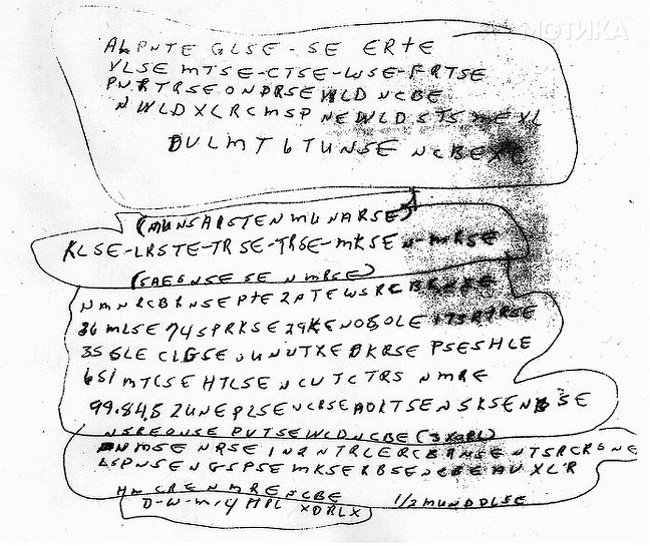 АДМОТИКА
ALPNTE GLSE-SE ERTE
VLSE MTSE-CTSE-WSE-FRTSE
PNRTRSEONDRSEWLD NCBE
NWLDXLRCMSP NEWLDSTS MEXL
DULMT6TUNSE NCBEXC
(MUNSARSTENMUNARSE)
KLSE-LRSTE-TRSE-TRSE-MKSEN-MRSE
(SAEGNSESE NMRSE)
NMNRCBRNSEPTE2PTEWSRCBRNSE
36MLSE74SPRKSE29KENOSOLE173RTRSE
35GLE CLGSEUNUTXEDKRSE PSESHLE
651MTCSEHTLSENCUTCTRS NMRE
99.84.52UNEPLSENCRSEAOLTSENSKSENBSE
NSREONSE PUTSEWLDNCBE (3XORL)
NMSE NRSE IN2NTRLERCBRNSENTSRCRONE
LSPNSENGSPSE MKSERBSENCBEAUXLR
HM CRE NMRE NCBE 1/2MUNDDLSE
D-W-M-4 HPL XDRLX